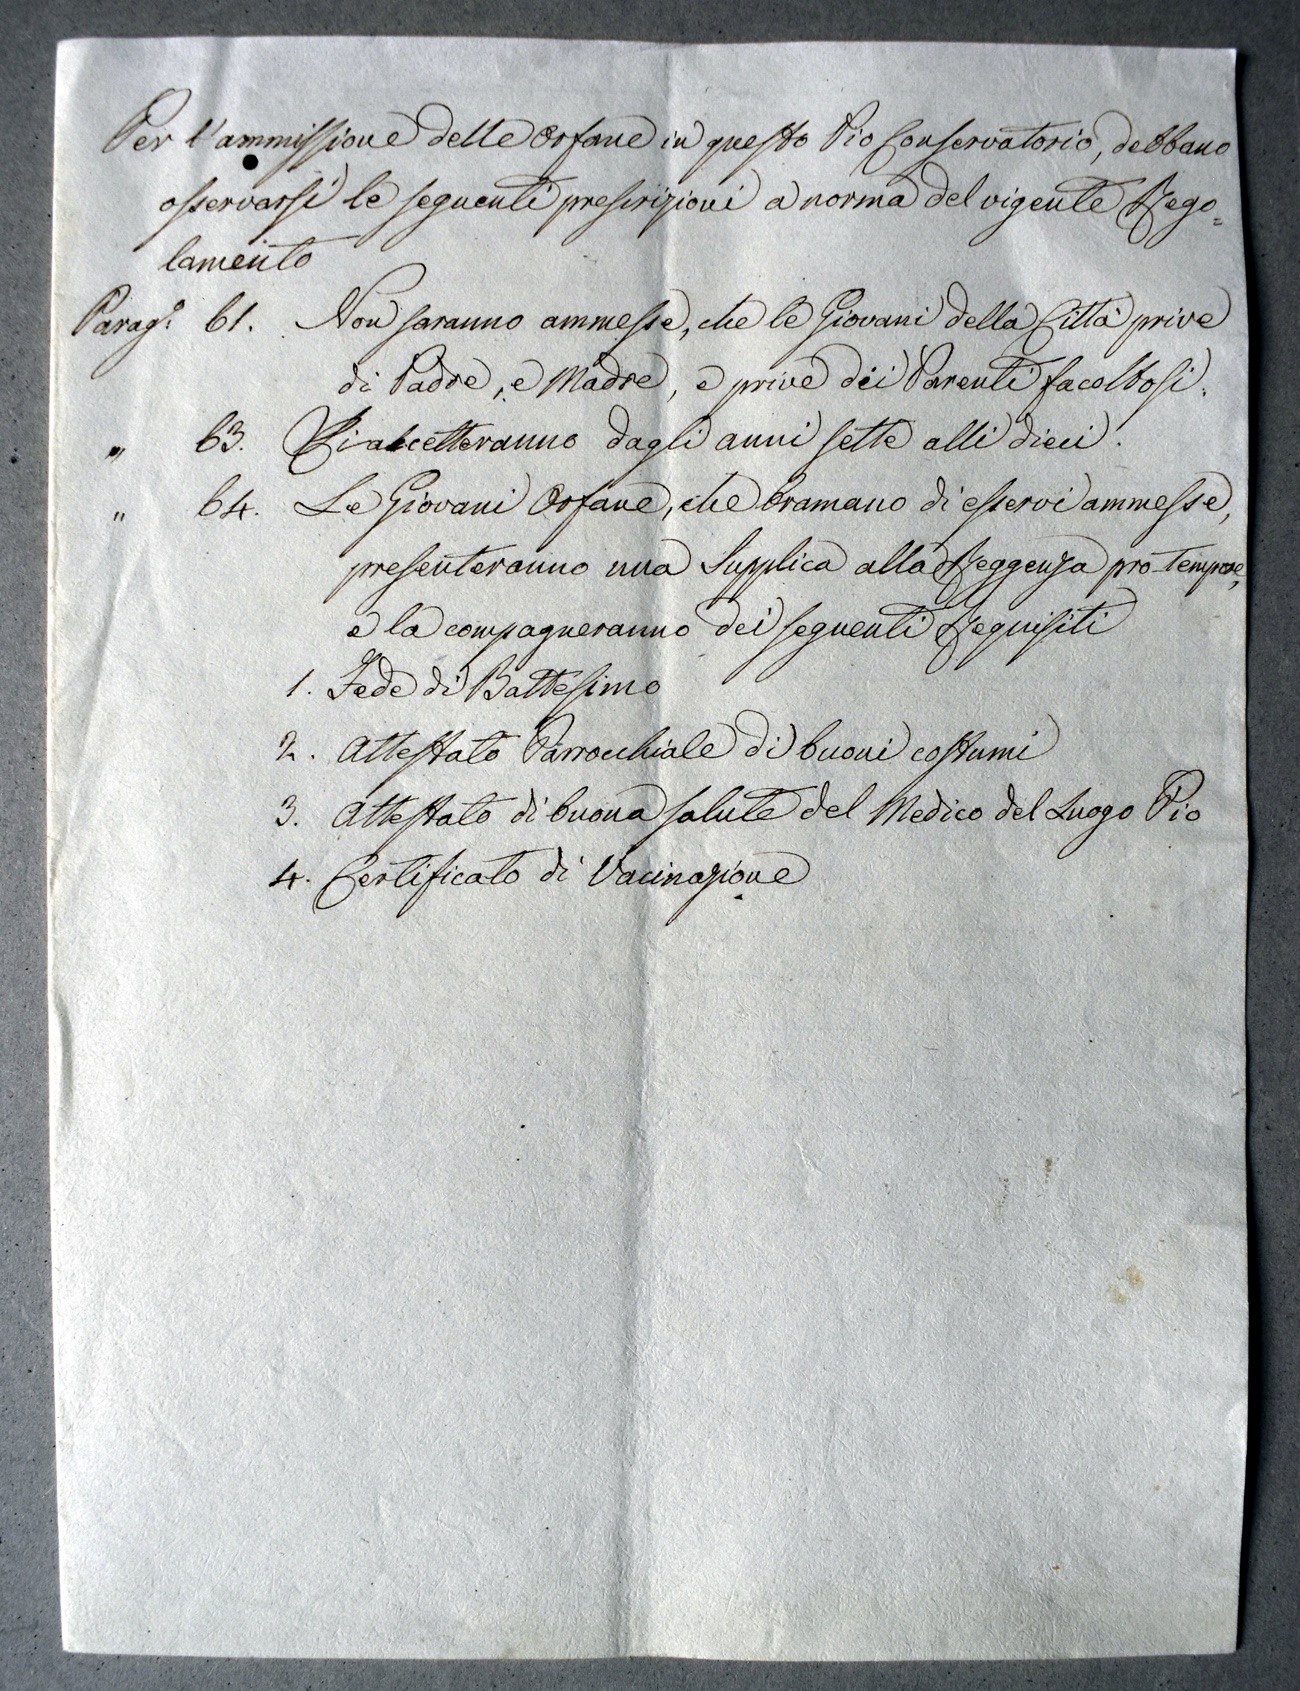 Per l'ammissione delle Orfane in questo Pio Conservatorio, debbano
osservarsi le seguenti prescrizioni a norma del vigente Rego=
lamento
Parag.º 61. Non saranno ammesse, che le Giovani della Città prive
di Padre, e Madre, e prive dei Parenti facoltosi.
" 63. Si accetteranno dagli anni sette alli dieci.
" 64. Le Giovani Orfane, che bramano di esservi ammesse,
presenteranno una Supplica alla Reggenza pro-tempore,
e la compagneranno dei seguenti Requisiti
1. Fede di Battesimo
2. Attestato Parrocchiale di buoni costumi
3. Attestato di buona salute del Medico del Luogo Pio
4. Certificato di Vacinazione